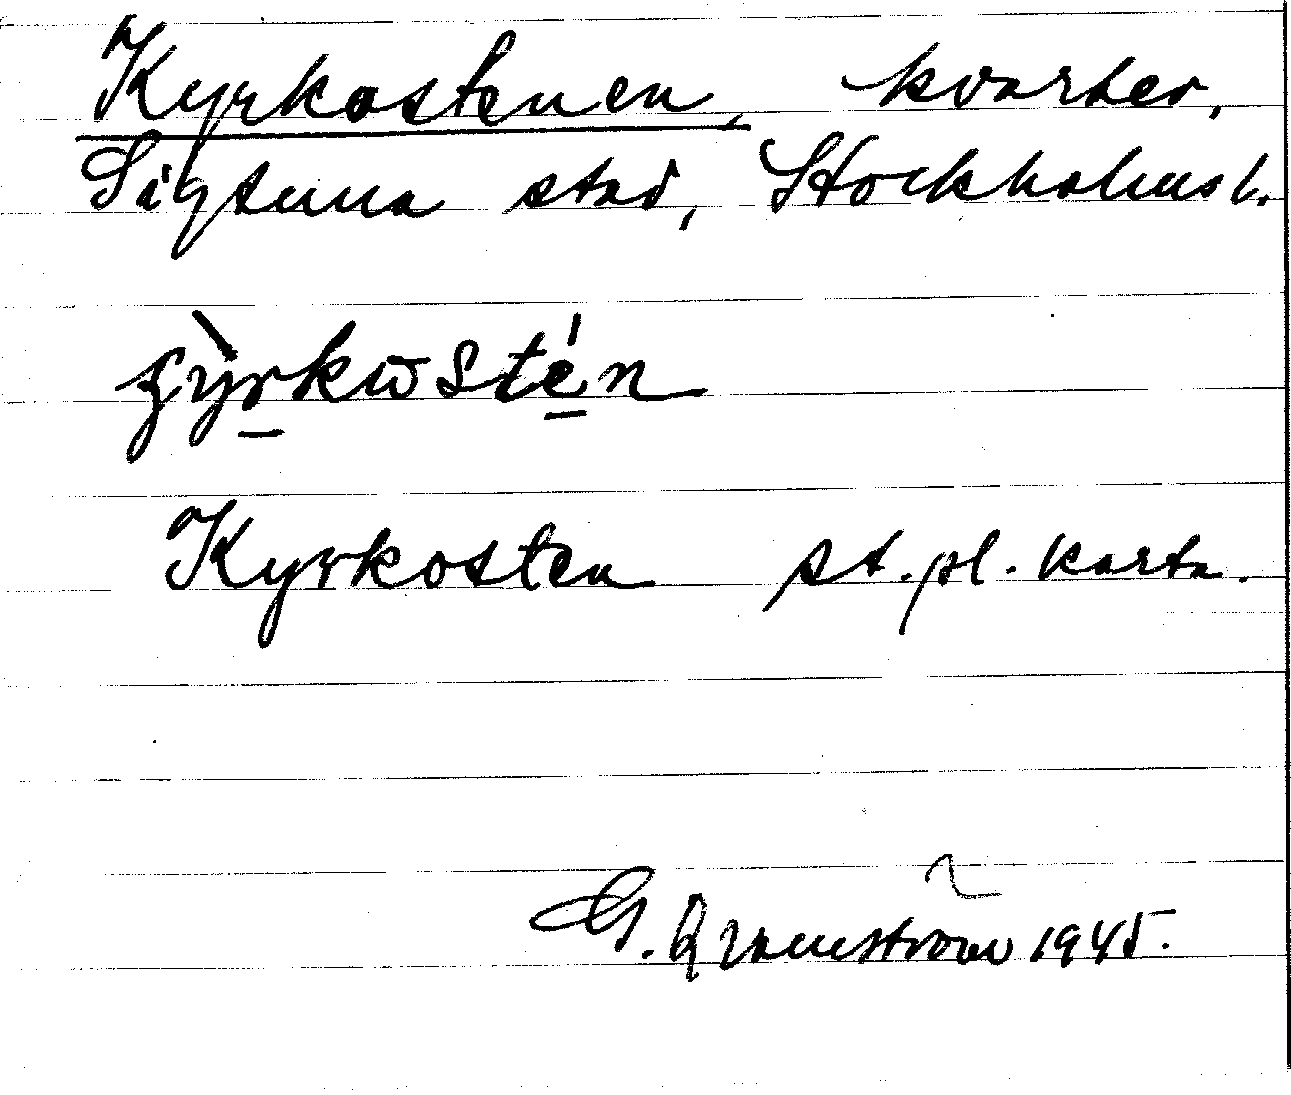 Kyrkostenen, kvarter,
Sigtuna stad, Stockholms l.
ȥỳrkωstén
Kyrkosten st.pl.karta.
G. 1945.